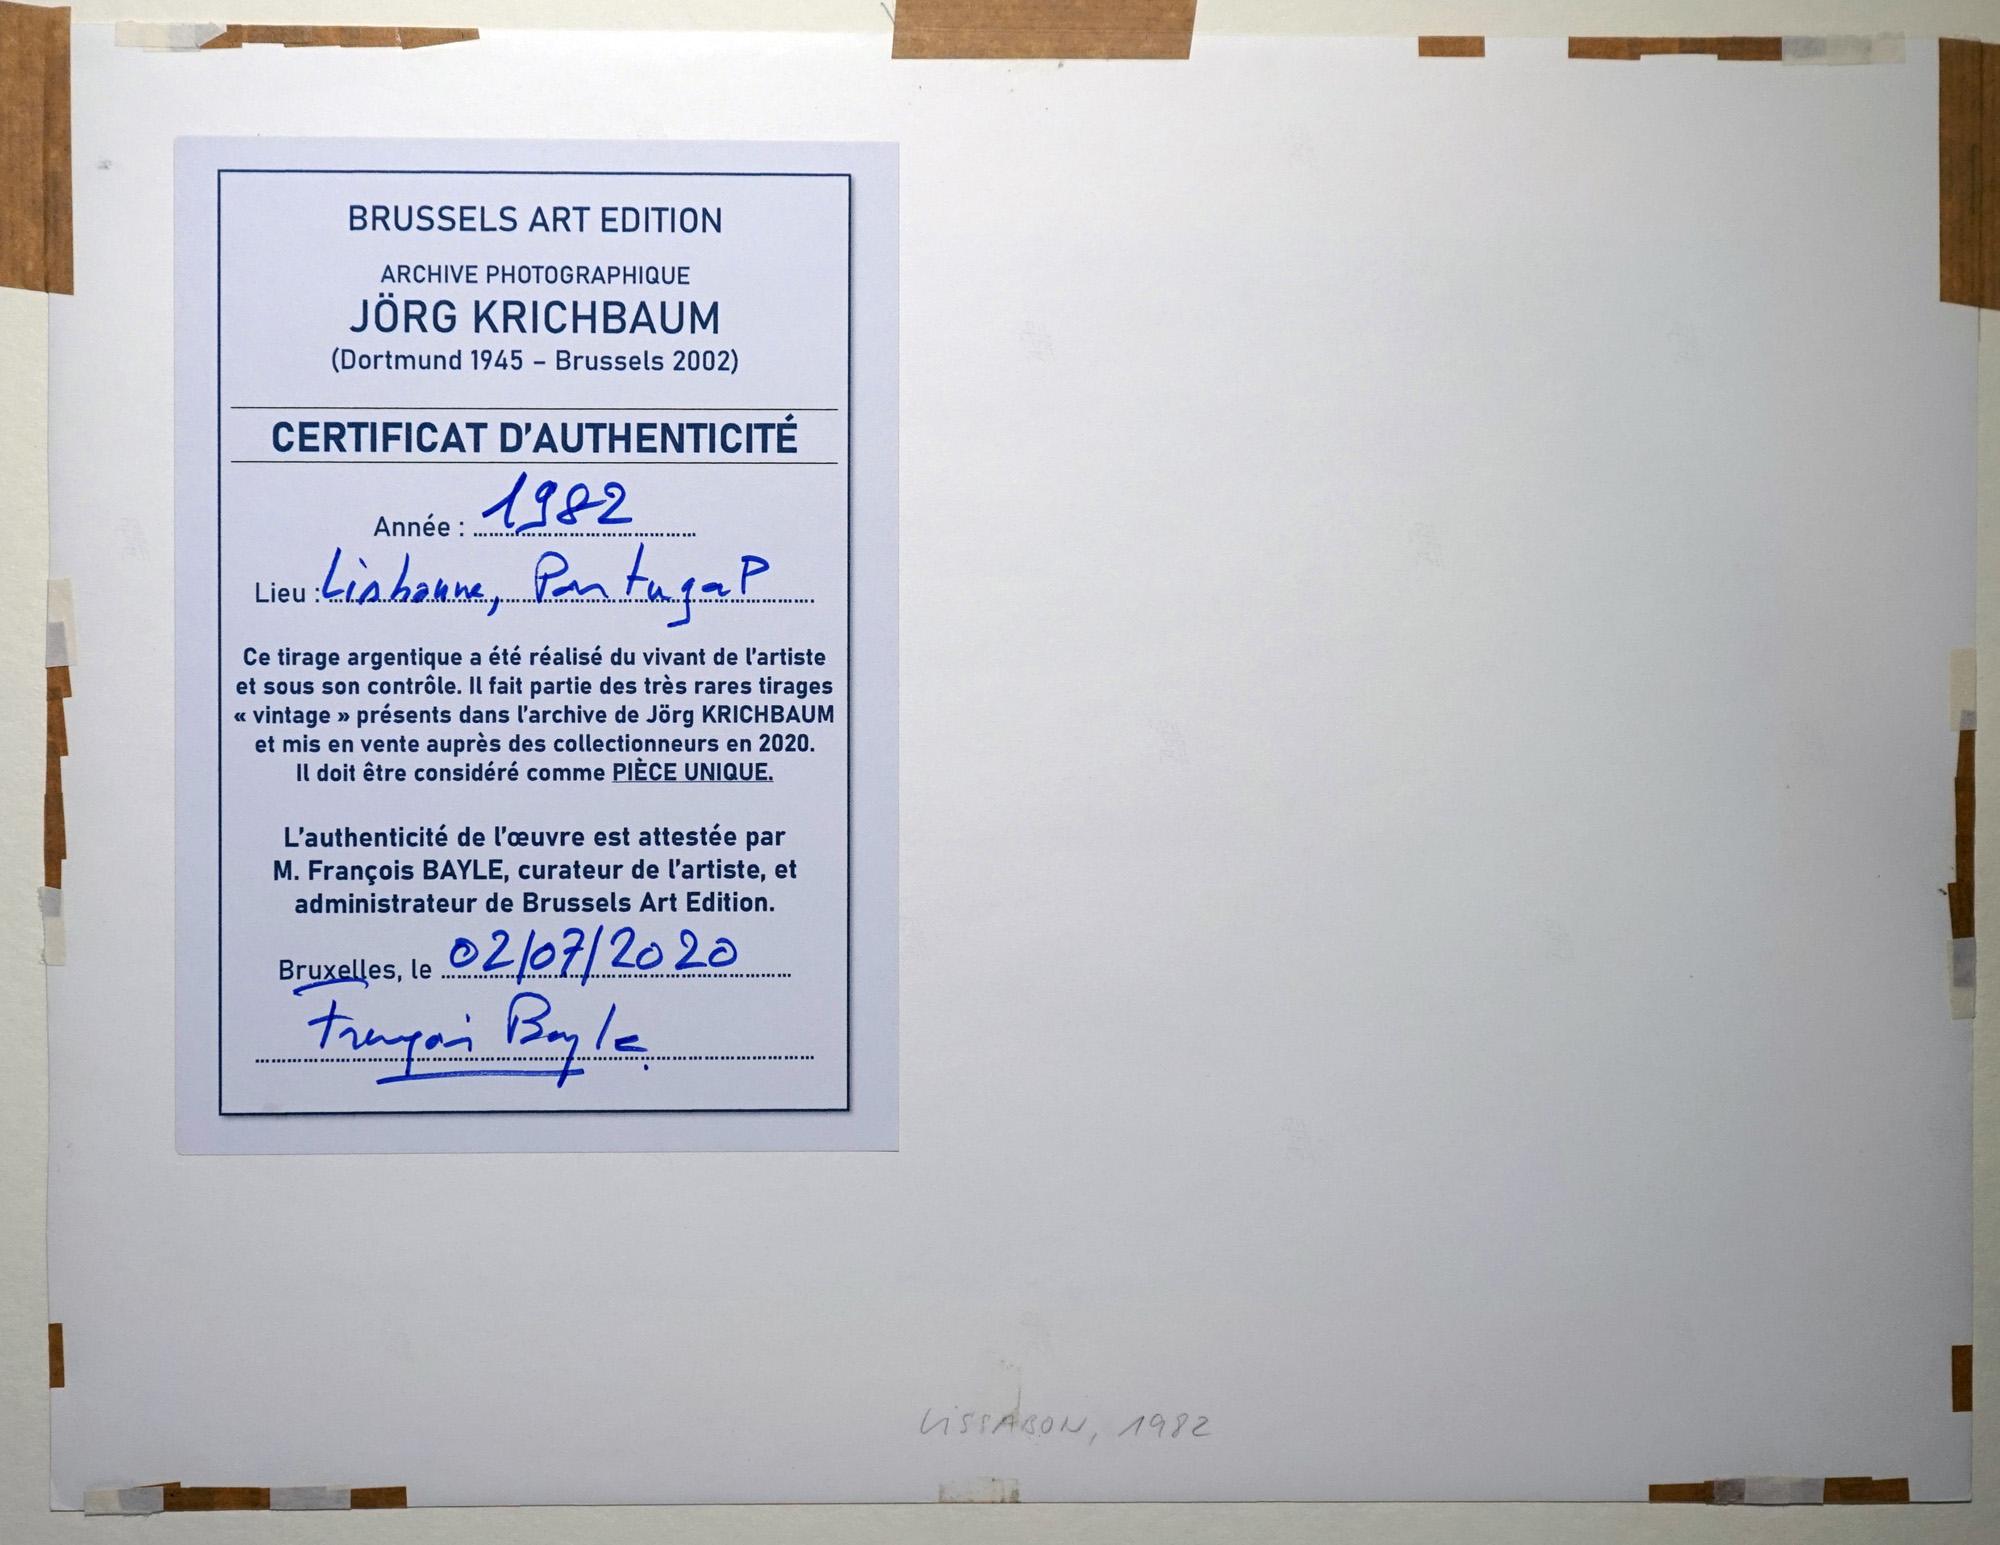 BRUSSELS ART EDITION
ARCHIVE PHOTOGRAPHIQUE
JÖRG KRICHBAUM
(Dortmund 1945 – Brussels 2002)
CERTIFICAT D'AUTHENTICITÉ
Année : 1982
Lieu : Lisbonne, Portugal
Ce tirage argentique a été réalisé du vivant de l'artiste
et sous son contrôle. Il fait partie des très rares tirages
« vintage » présents dans l'archive de Jörg KRICHBAUM
et mis en vente auprès des collectionneurs en 2020.
Il doit être considéré comme PIÈCE UNIQUE.
L'authenticité de l'œuvre est attestée par
M. François BAYLE, curateur de l'artiste, et
administrateur de Brussels Art Edition.
Bruxelles, le 02/07/2020
François Bayle
LISSABON, 1982